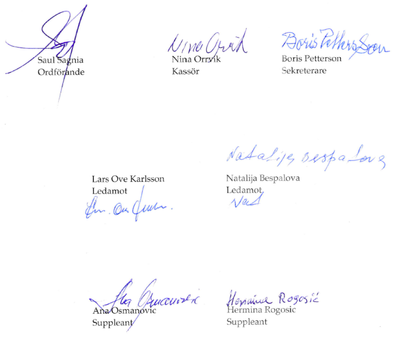 Nina Orrvik Boris Petterson
Saul Sagnia Nina Orrzik Boris Petterson
Ordförande Kassör Sekreterare
Natalija Bespalova
Lars Ove Karlsson Natalija Bespalova
Ledamot Ledamot
Ana Osmanovic Hermina Rogosić
Ana Osmanovic Hermina Rogosic
Suppleant Suppleant